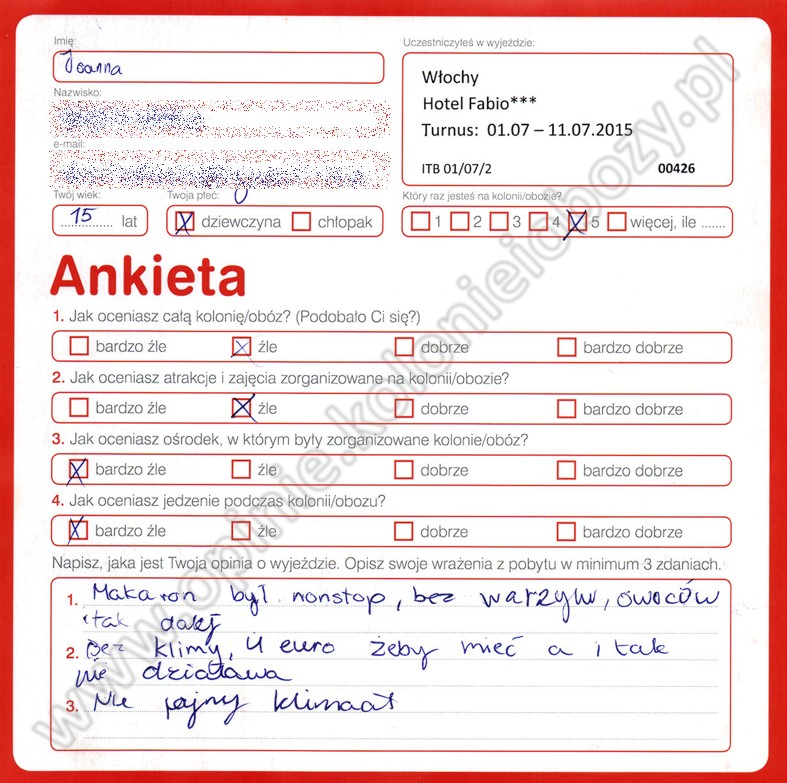 Imię:
Joanna
Nazwisko:
e-mail:
Twój wiek:
15 lat
Twoja płeć:
dziewczyna chłopak
Uczestniczyłeś w wyjeździe:
Włochy
Hotel Fabio***
Turnus: 01.07 – 11.07.2015
ITB 01/07/2 00426
Który raz jesteś na kolonii/obozie?
1 2 3 4 5 więcej, ile .......
Ankieta
1. Jak oceniasz całą kolonię/obóz? (Podobało Ci się?)
bardzo źle źle dobrze bardzo dobrze
2. Jak oceniasz atrakcje i zajęcia zorganizowane na kolonii/obozie?
bardzo źle źle dobrze bardzo dobrze
3. Jak oceniasz ośrodek, w którym były zorganizowane kolonie/obóz?
bardzo źle źle dobrze bardzo dobrze
4. Jak oceniasz jedzenie podczas kolonii/obozu?
bardzo źle źle dobrze bardzo dobrze
Napisz, jaka jest Twoja opinia o wyjeździe. Opisz swoje wrażenia z pobytu w minimum 3 zdaniach.
1. Makaron był nonstop, bez warzyw, owoców
itak dalej
2. Bez klimy, 4 euro żeby mieć a i tak
nie działawa
3. Nie fajny klimaat
www.opinie.kolonieiobozy.pl